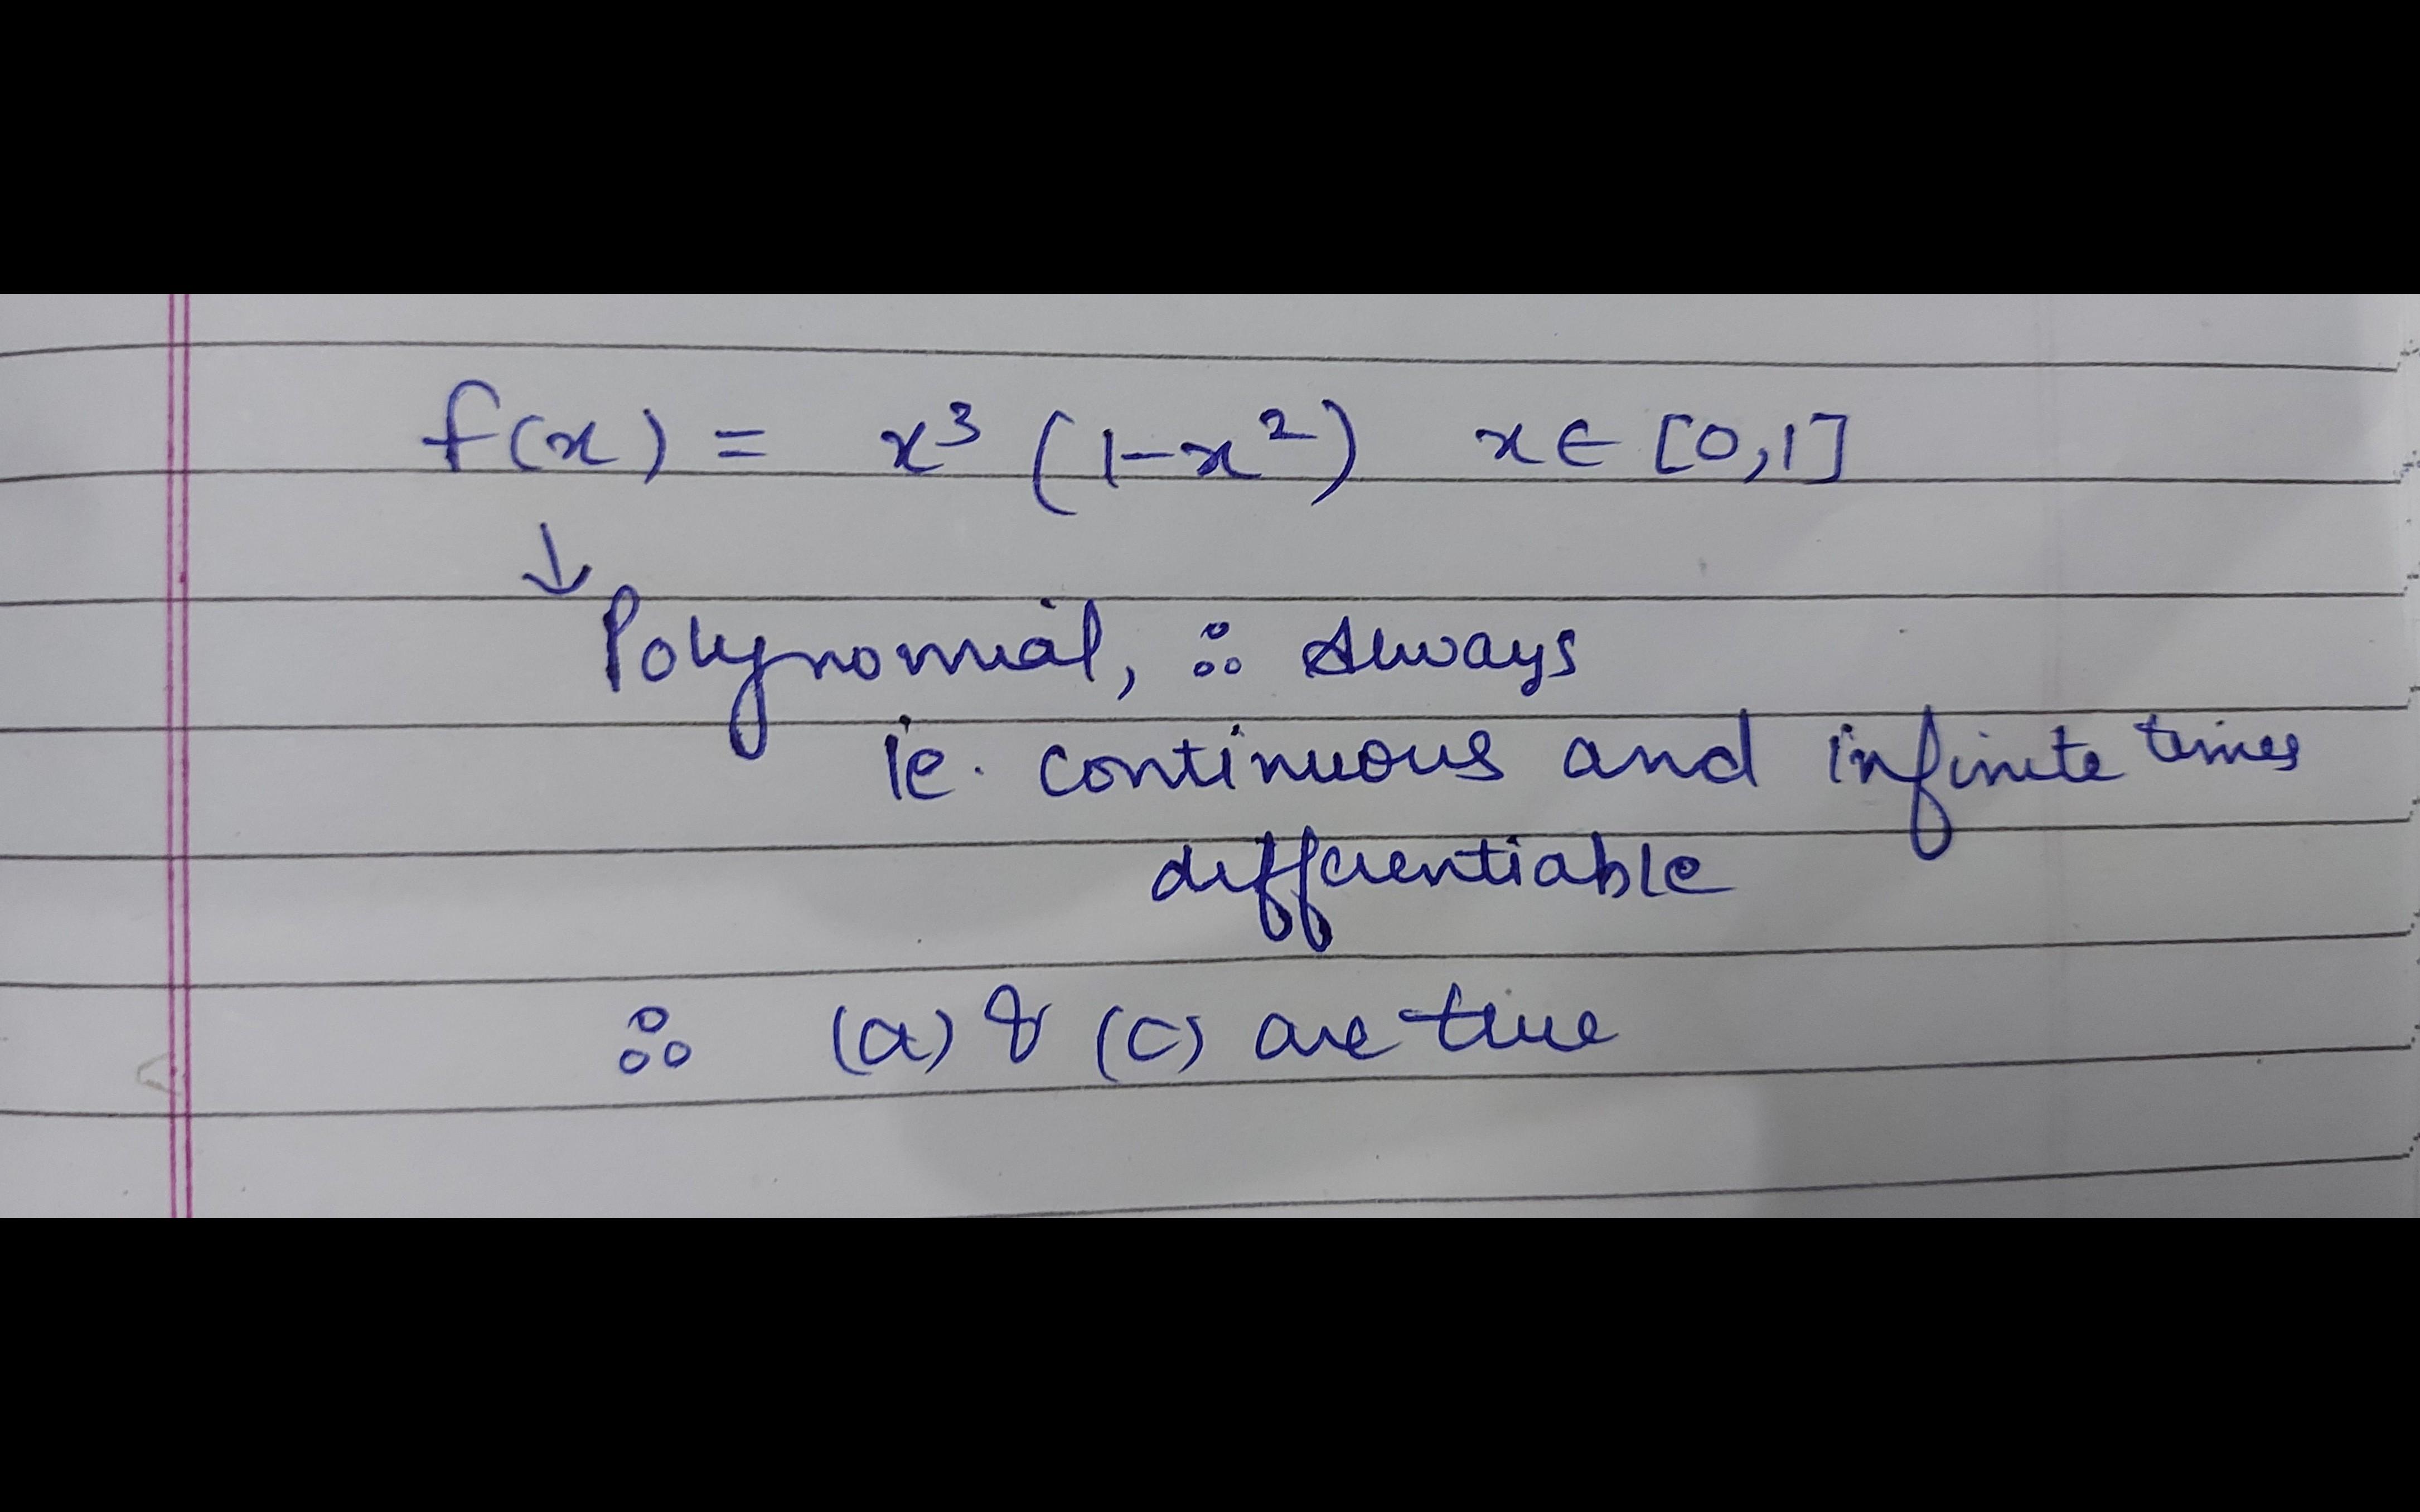 f(x) = x³ (1-x²) x ∈ [0,1]
↓
Polynomial, ∴ Always
ie. continuous and infinite times
differentiable
∴ (a) & (c) are true